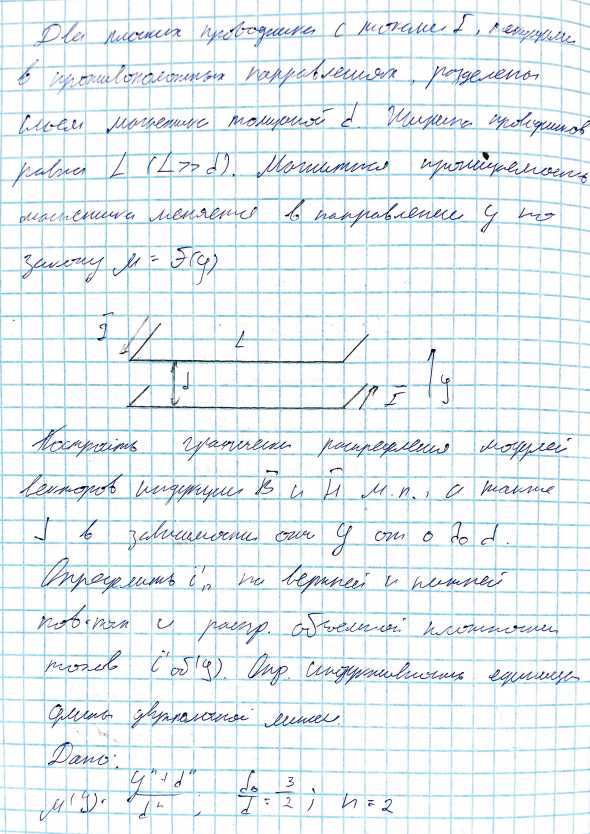 Два плоских проводника с токами I, текущими
в противоположных направлениях, разделены
слоем магнетика толщиной d. Ширина проводников
равна L (L>>d). Магнитная проницаемость
магнетика меняется в направлении y по
закону μ = F(y)
I
L
d
I
y
Построить графически распределения модулей
векторов индукции B̄ и H̄ м.п., а также
J в зависимости от y от 0 до d.
Определить i'п на верхней и нижней
пов-тях и распр. объемной плотности
токов i'об(y). Опр. индуктивность единицы
длины двухполосной линии.
Дано:
μ(y) = (yⁿ+dⁿ)/dⁿ ; d₀/d = 3/2 ; n=2